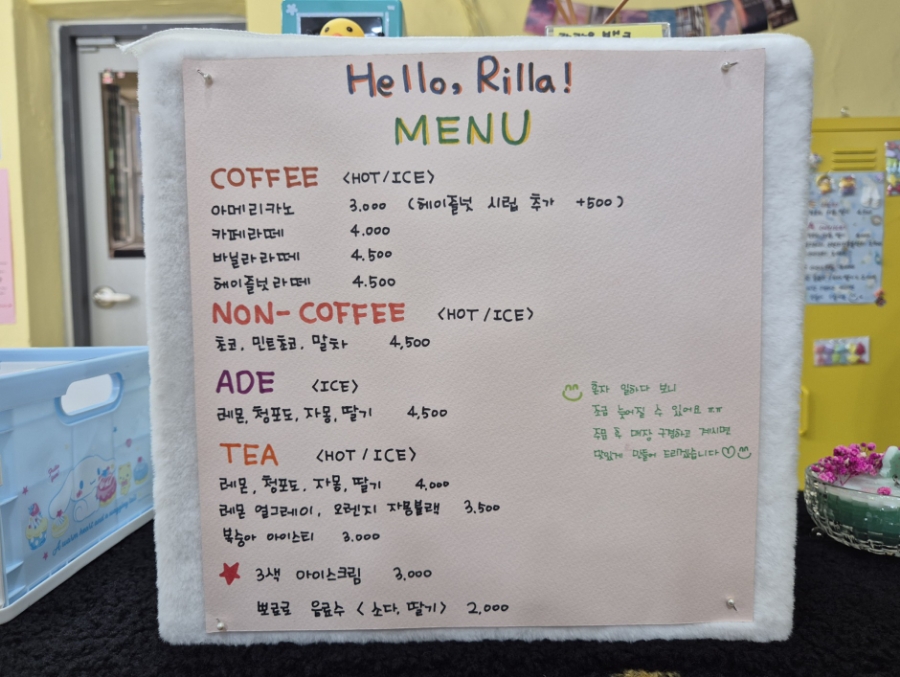 Hello, Rilla!
MENU
COFFEE <HOT/ICE>
아메리카노 3.000 (헤이즐넛 시럽 추가 +500)
카페라떼 4.000
바닐라라떼 4.500
헤이즐넛라떼 4.500
NON-COFFEE <HOT/ICE>
초코, 민트초코, 말차 4,500
ADE <ICE>
레몬, 청포도, 자몽, 딸기 4,500
혼자 일하다 보니
조금 늦어질 수 있어요 ㅠㅠ
주문 후 매장 구경하고 계시면
맛있게 만들어 드리겠습니다
TEA <HOT/ICE>
레몬, 청포도, 자몽, 딸기 4,000
레몬 얼그레이, 오렌지 자몽블랙 3,500
복숭아 아이스티 3.000
3색 아이스크림 3,000
뽀로로 음료수 <소다, 딸기> 2,000